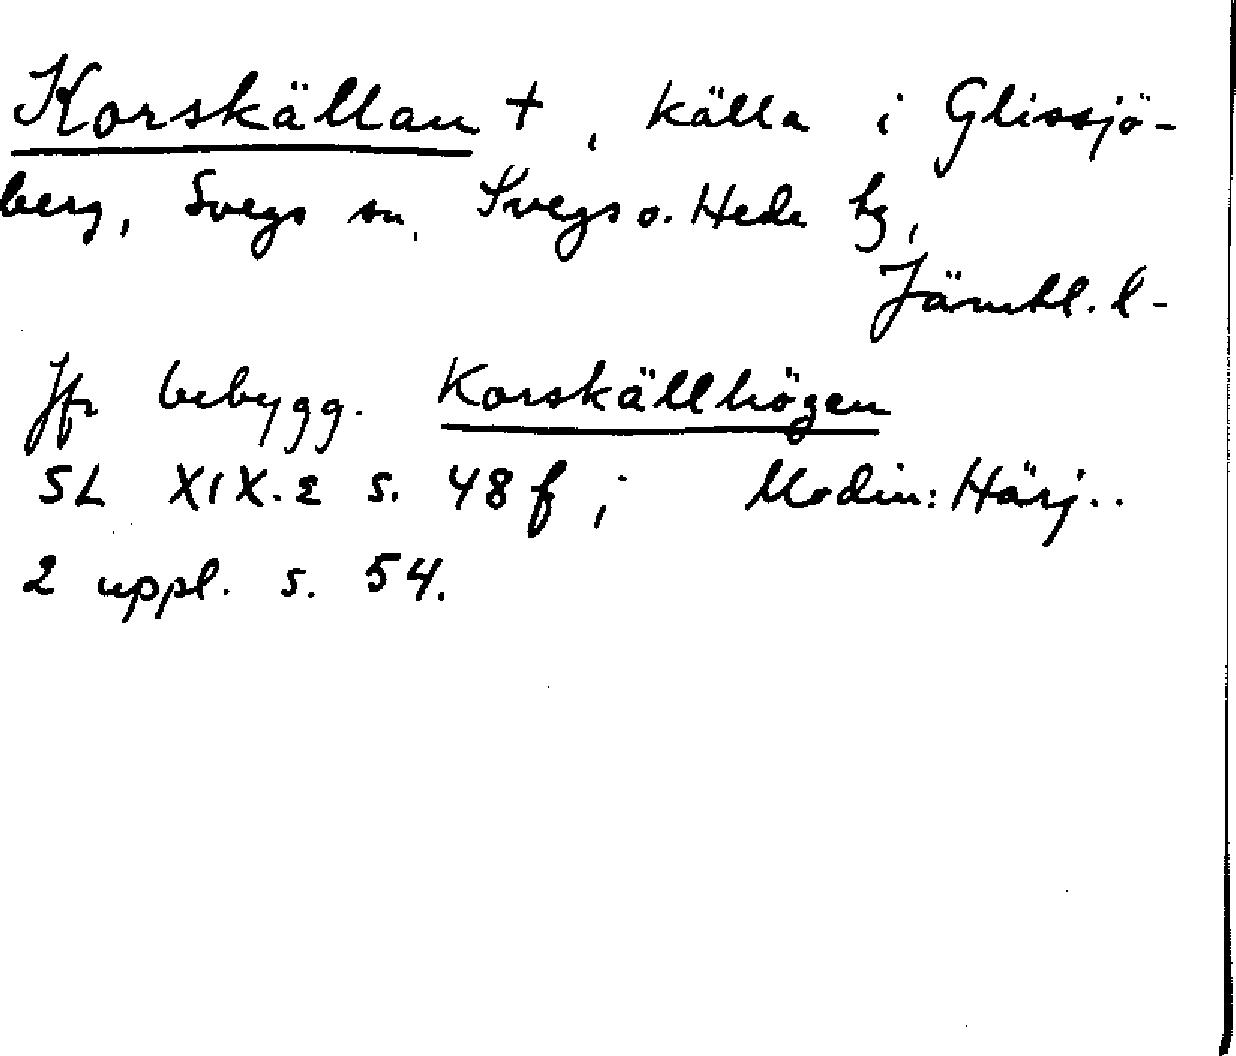 Korskällan +, källa i Glissjö-
berg, Svegs sn, Svegs o. Hede tg,
Jämtl. l-
Jfr bebygg. Korskällhögen
SL XIX.2 s. 48 f; Modin: Härj..
2 uppl. s. 54.